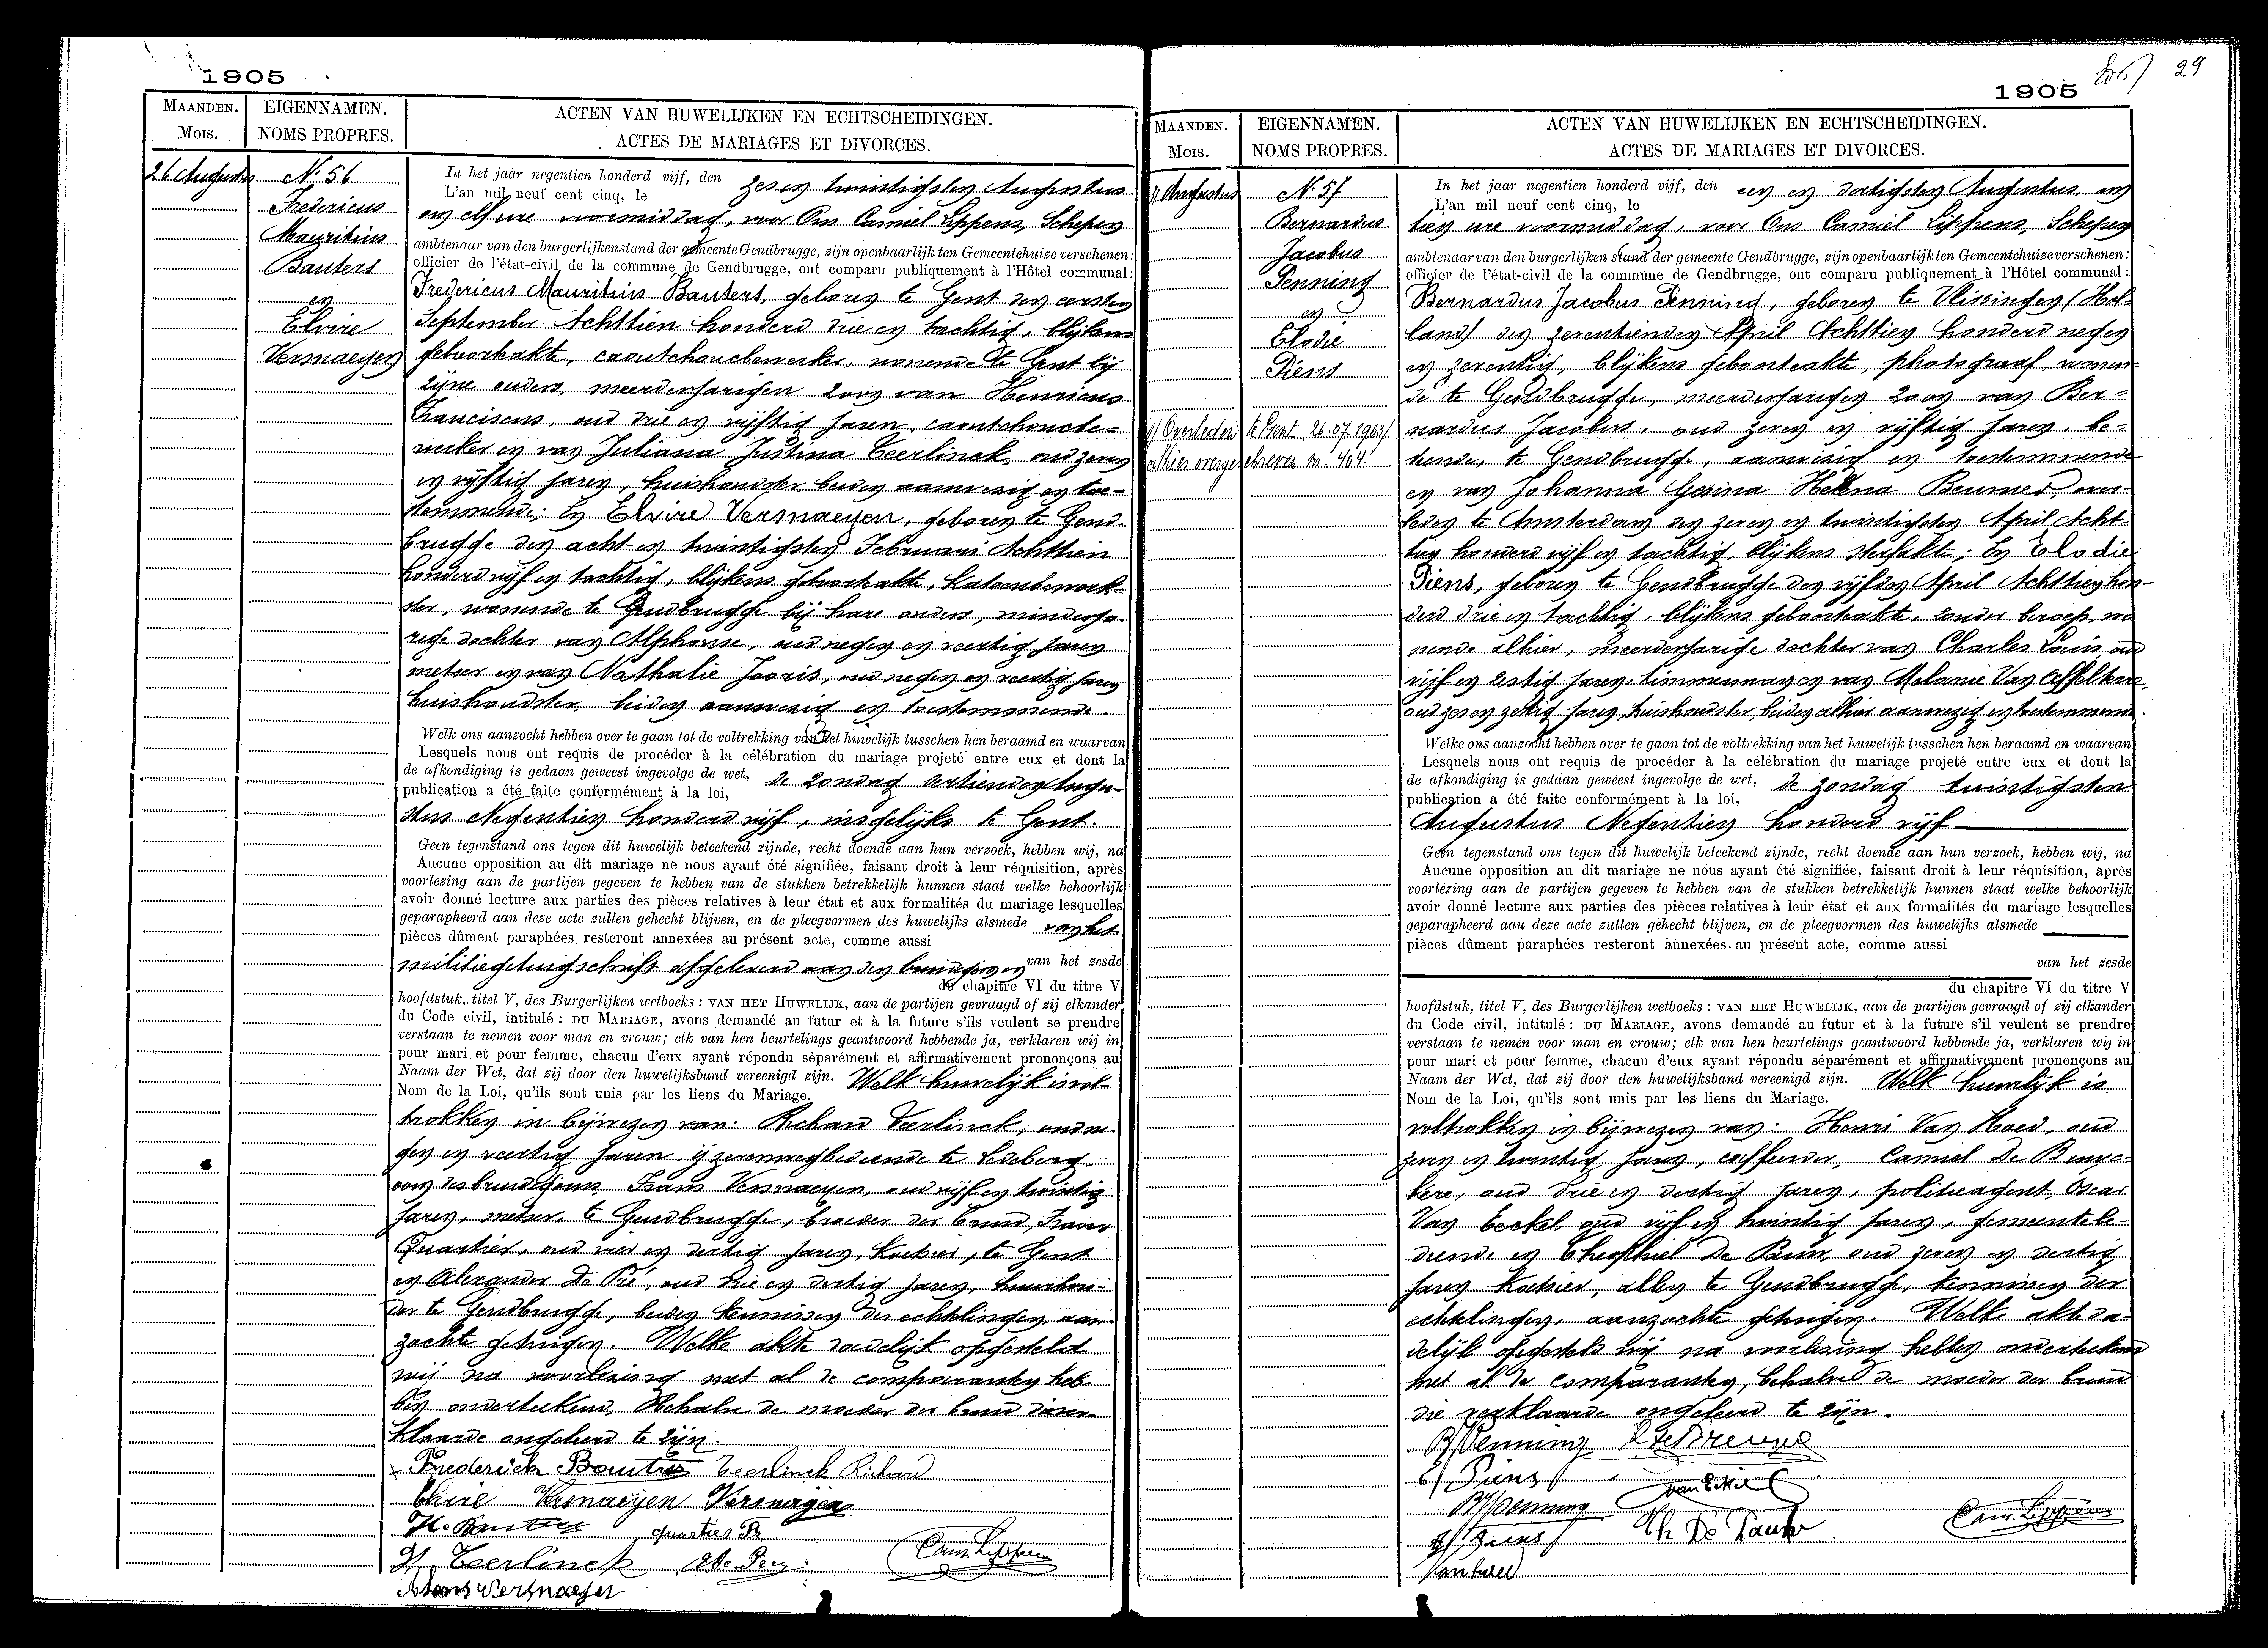 1905
MAANDEN.
Mois.
EIGENNAMEN.
NOMS PROPRES.
ACTEN VAN HUWELIJKEN EN ECHTSCHEIDINGEN.
ACTES DE MARIAGES ET DIVORCES.
26 Augustus
N.° 56
Fredericus
Mauritius
Bauters
en
Elvire
Vermaeyen
In het jaar negentien honderd vijf, den
L'an mil neuf cent cinq, le
zes en twintigsten Augustus
en elf ure voormiddag, voor Ons Camiel Lippens, Schepen
ambtenaar van den burgerlijkenstand der gemeente Gendbrugge, zijn openbaarlijk ten Gemeentehuize verschenen:
officier de l'état-civil de la commune de Gendbrugge, ont comparu publiquement à l'Hôtel communal:
Fredericus Mauritius Bauters, geboren te Gent den eersten
September Achttien honderd drie en tachtig, blijkens
geboorteakte, caoutchoucbewerker, wonende te Gent bij
zijne ouders, meerderjarigen zoon van Henricus
Franciscus, oud drie en vijftig jaren, caoutchoucbe-
werker en van Juliana Justina Teerlinck, oud zeven
en vijftig jaren, huishoudster, beiden aanwezig en toe-
stemmende; En Elvire Vermaeyen, geboren te Gend-
brugge den acht en twintigsten Februari Achttien
honderd vijf en tachtig, blijkens geboorteakte, katoenbewerk-
ster, wonende te Gendbrugge bij hare ouders, minderja-
rige dochter van Alphonse, oud negen en veertig jaren
metser en van Nathalie Jooris, oud negen en veertig jaren
huishoudster, beiden aanwezig en toestemmende.
Welk ons aanzocht hebben over te gaan tot de voltrekking van het huwelijk tusschen hen beraamd en waarvan
Lesquels nous ont requis de procéder à la célébration du mariage projeté entre eux et dont la
de afkondiging is gedaan geweest ingevolge de wet,
publication a été faite conformément à la loi,
de zondag dertienden Augu-
stus Negentien honderd vijf, insgelijks te Gent.
Geen tegenstand ons tegen dit huwelijk beteekend zijnde, recht doende aan hun verzoek, hebben wij, na
Aucune opposition au dit mariage ne nous ayant été signifiée, faisant droit à leur réquisition, après
voorlezing aan de partijen gegeven te hebben van de stukken betrekkelijk hunnen staat welke behoorlijk
avoir donné lecture aux parties des pièces relatives à leur état et aux formalités du mariage lesquelles
geparapheerd aan deze acte zullen gehecht blijven, en de pleegvormen des huwelijks alsmede van het
pièces dûment paraphées resteront annexées au présent acte, comme aussi
militiegetuigschrift afgeleverd aan den bruidegom en van het zesde
du chapitre VI du titre V
hoofdstuk, titel V, des Burgerlijken wetboeks: VAN HET HUWELIJK, aan de partijen gevraagd of zij elkander
du Code civil, intitulé: DU MARIAGE, avons demandé au futur et à la future s'ils veulent se prendre
verstaan te nemen voor man en vrouw; elk van hen beurtelings geantwoord hebbende ja, verklaren wij in
pour mari et pour femme, chacun d'eux ayant répondu séparément et affirmativement prononçons au
Naam der Wet, dat zij door den huwelijksband vereenigd zijn. Welk huwelijk is vol-
Nom de la Loi, qu'ils sont unis par les liens du Mariage.
trokken in bijwezen van: Richard Teerlinck, oud ne-
gen en veertig jaren ijzerenwegbediende te Ledeberg,
oom des bruidegoms Frans Vermaeyen, oud vijf en twintig
jaren, metser te Gendbrugge, broeder der bruid, Frans
Quartier, oud vier en dertig jaren, te Gent
en Alexander De Pré, oud drie en dertig jaren,
der te Gendbrugge, beiden kennissen der echtelingen, aan-
zochte getuigen. Welke akte dadelijk opgesteld
wij na voorlezing met al de comparanten heb-
ben onderteekend, behalve de moeder der bruid die ver-
klaarde ongeleerd te zijn.
Frederich Bauters Teerlinck Richard
Elvire Vermaeyen Vermaeyen
H. Bauters quartier
J. Teerlinck
Cam. Lippens
Alfons Vermaeyen
29
1905
MAANDEN.
Mois.
EIGENNAMEN.
NOMS PROPRES.
ACTEN VAN HUWELIJKEN EN ECHTSCHEIDINGEN.
ACTES DE MARIAGES ET DIVORCES.
31 Augustus
N.° 57
Bernardus
Jacobus
Penning
en
Elodie
Piens
1) Overleden te Gent, 26.07.1963
alhier overgeschreven nr 404
In het jaar negentien honderd vijf, den
L'an mil neuf cent cinq, le
een en dertigsten Augustus, om
tien ure voormiddag, voor Ons Camiel Lippens, Schepen
ambtenaar van den burgerlijken stand der gemeente Gendbrugge, zijn openbaarlijk ten Gemeentehuize verschenen:
officier de l'état-civil de la commune de Gendbrugge, ont comparu publiquement à l'Hôtel communal:
Bernardus Jacobus Penning, geboren te Vlissingen (Hol-
land) den zeventienden April Achttien honderd negen
en zeventig, blijkens geboorteakte, photograaf, wonen-
de te Gendbrugge, meerderjarigen zoon van Ber-
nardus Jacobus, oud zeven en vijftig jaren, be-
diende, te Gendbrugge, aanwezig en toestemmende
en van Johanna Gesina Helena Beumer, over-
leden te Amsterdam den zeven en twintigsten April Acht-
tien honderd vijf en tachtig, blijkens sterfakte; En Elodie
Piens, geboren te Gendbrugge den vijfden April Achttien hon-
derd drie en tachtig, blijkens geboorteakte, zonder beroep, wo-
nende alhier, meerderjarige dochter van Charles Louis, oud
vijf en zestig jaren, timmerman en van Melanie Van
oud zes en zestig jaren, huishoudster, beiden alhier aanwezig en toestemmende.
Welke ons aanzocht hebben over te gaan tot de voltrekking van het huwelijk tusschen hen beraamd en waarvan
Lesquels nous ont requis de procéder à la célébration du mariage projeté entre eux et dont la
de afkondiging is gedaan geweest ingevolge de wet,
publication a été faite conformément à la loi,
de zondag twintigsten
Augustus Negentien honderd vijf
Geen tegenstand ons tegen dit huwelijk beteekend zijnde, recht doende aan hun verzoek, hebben wij, na
Aucune opposition au dit mariage ne nous ayant été signifiée, faisant droit à leur réquisition, après
voorlezing aan de partijen gegeven te hebben van de stukken betrekkelijk hunnen staat welke behoorlijk
avoir donné lecture aux parties des pièces relatives à leur état et aux formalités du mariage lesquelles
geparapheerd aan deze acte zullen gehecht blijven, en de pleegvormen des huwelijks alsmede
pièces dûment paraphées resteront annexées au présent acte, comme aussi
van het zesde
du chapitre VI du titre V
hoofdstuk, titel V, des Burgerlijken wetboeks: VAN HET HUWELIJK, aan de partijen gevraagd of zij elkander
du Code civil, intitulé: DU MARIAGE, avons demandé au futur et à la future s'il veulent se prendre
verstaan te nemen voor man en vrouw; elk van hen beurtelings geantwoord hebbende ja, verklaren wij in
pour mari et pour femme, chacun d'eux ayant répondu séparément et affirmativement prononçons au
Naam der Wet, dat zij door den huwelijksband vereenigd zijn. Welk huwelijk is
Nom de la Loi, qu'ils sont unis par les liens du Mariage.
voltrokken in bijwezen van: Henri Van Hoed, oud
zeven en twintig jaren, Camiel De
oud drie en dertig jaren, politieagent, Oscar
Van Eeckel, oud vijf en twintig jaren, gemeentebe-
diende en Theophiel De Pauw, oud zeven en dertig
jaren, allen te Gendbrugge, kennissen der
echtelingen, aanzochte getuigen. Welke akte da-
delijk opgesteld wij na voorlezing hebben onderteekend
met al de comparanten, behalve de moeder der bruid
die verklaarde ongeleerd te zijn.
B/Penning
E/Piens
van Eckel
B/Penning
Th De Pauw
Piens
Cam. Lippens